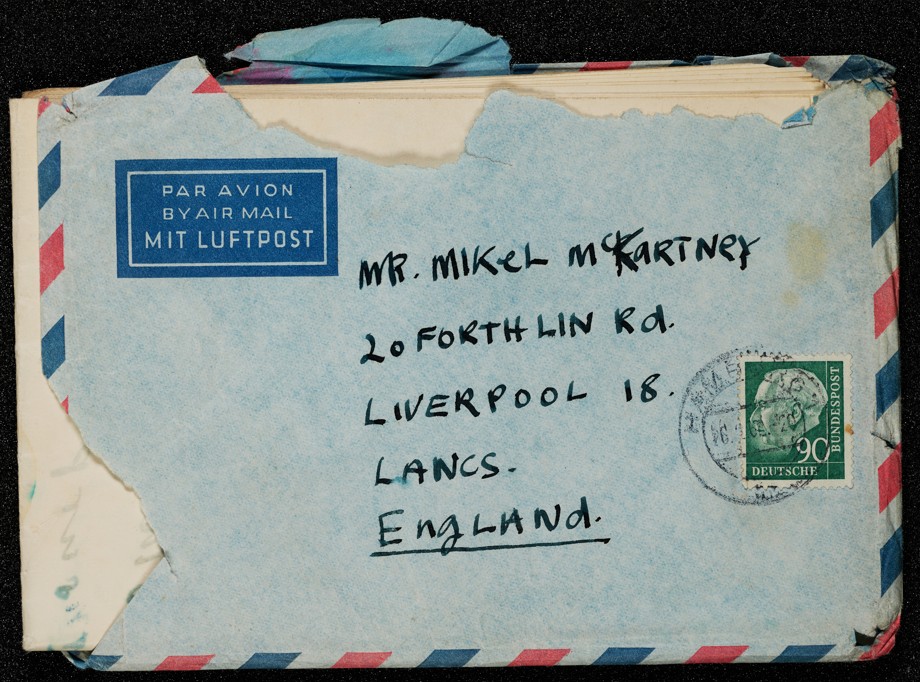 PAR AVION
BY AIR MAIL
MIT LUFTPOST
MR. MIKEL McKARTNEY
20 FORTHLIN Rd.
LIVERPOOL 18.
LANCS.
EngLANd.
90
DEUTSCHE
BUNDESPOST